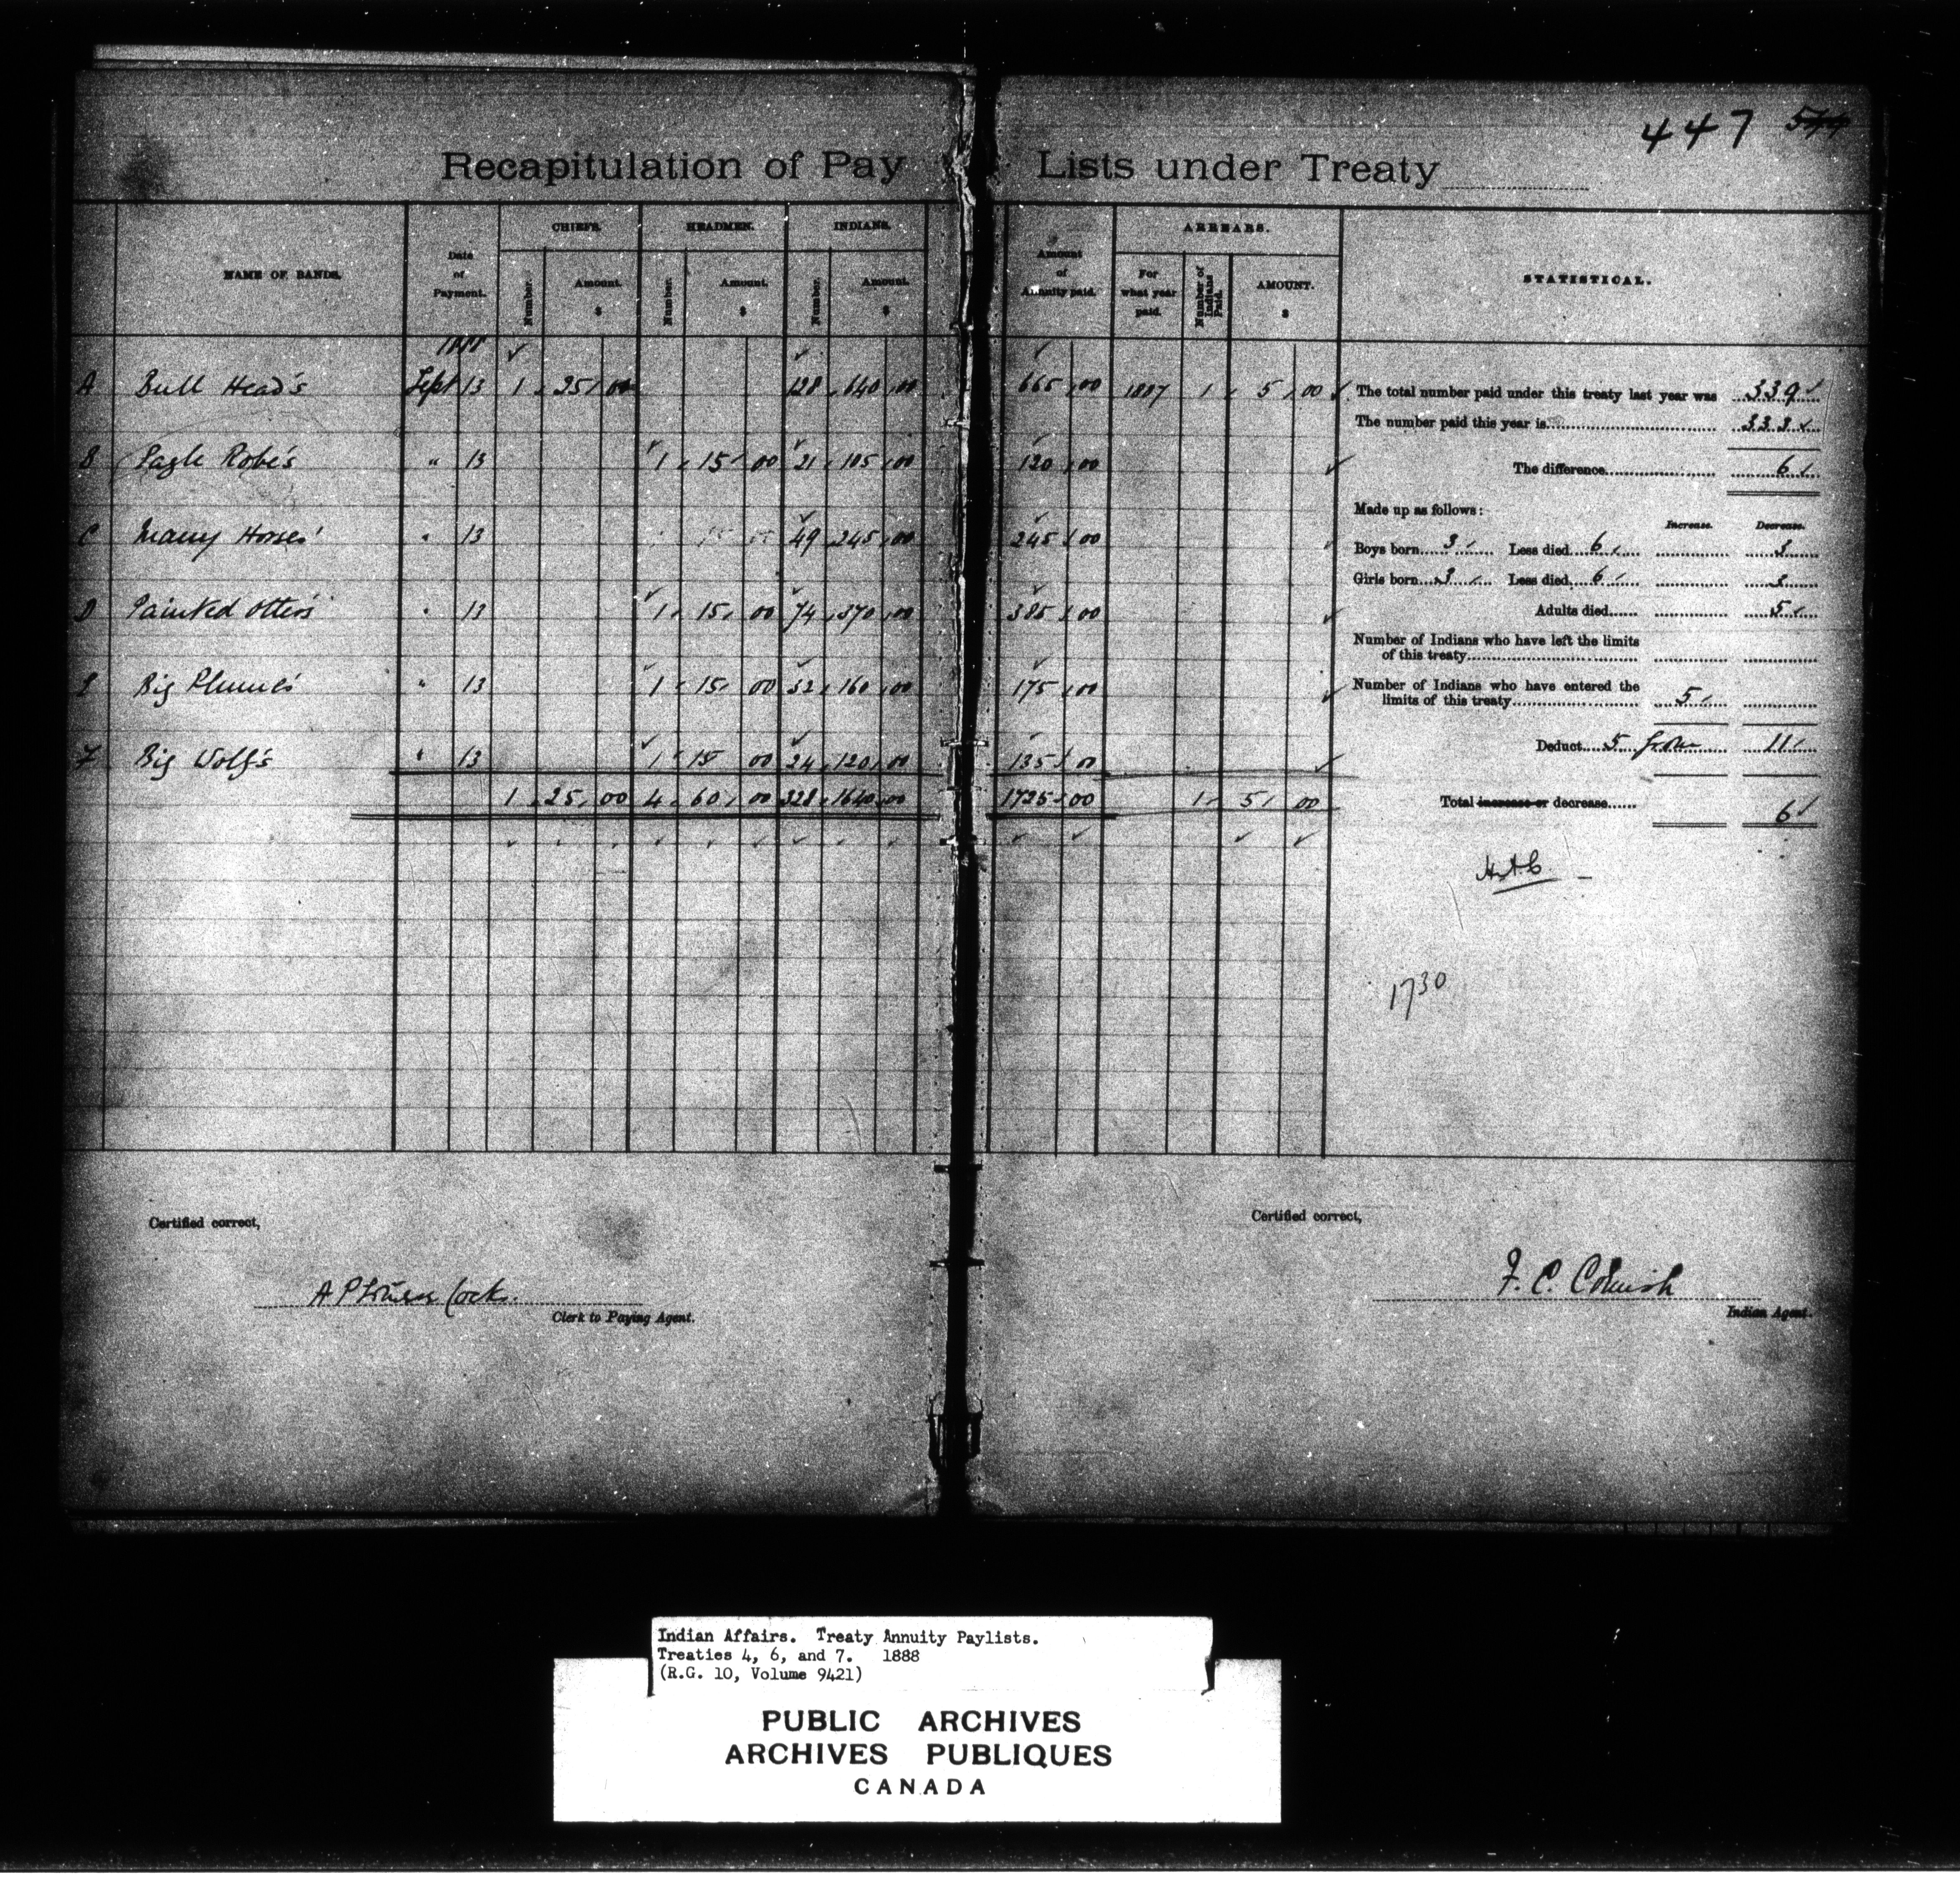 447 544
Recapitulation of Pay Lists under Treaty
NAME OF BANDS. Date of Payment. CHIEFS. HEADMEN. INDIANS. Amount of Annuity paid. ARREARS. STATISTICAL.
Number. Amount. $ Number. Amount. $ Number. Amount. $ For what year paid. Number of Indians Paid. AMOUNT. $
1888
A Bull Head's Sept 13 1 25 00 128 640 00 665 00 1887 1 5 00
B Eagle Robe's " 13 1 15 00 21 105 00 120 00
C Many Horses' " 13 49 245 00 245 00
D Painted Otters' " 13 1 15 00 74 370 00 385 00
E Big Plume's " 13 1 15 00 32 160 00 175 00
F Big Wolf's " 13 1 15 00 24 120 00 135 00
1 25 00 4 60 00 328 1640 00 1725 00 1 5 00
The total number paid under this treaty last year was 339
The number paid this year is 333
The difference 6
Made up as follows:
Increase. Decrease.
Boys born 3 Less died 6 3
Girls born 3 Less died 6 3
Adults died 5
Number of Indians who have left the limits
of this treaty
Number of Indians who have entered the
limits of this treaty 5
Deduct 5 from 11
Total increase or decrease 6
1730
Certified correct,
Clerk to Paying Agent.
Certified correct,
F. C. Cornish
Indian Agent.
Indian Affairs. Treaty Annuity Paylists.
Treaties 4, 6, and 7. 1888
(R.G. 10, Volume 9421)
PUBLIC ARCHIVES
ARCHIVES PUBLIQUES
CANADA